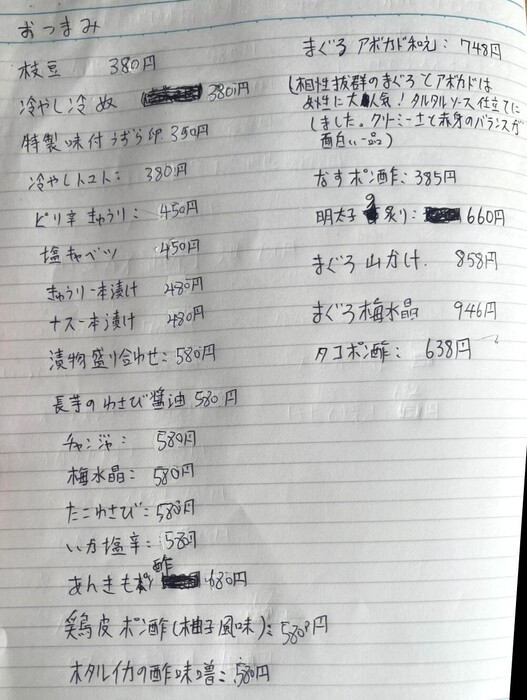 おつまみ
枝豆 380円
冷やし冷奴 380円
特製味付うずら卵 350円
冷やしトマト: 380円
ピリ辛きゅうり: 450円
塩キャベツ 450円
きゅうり一本漬け 480円
ナス一本漬け 480円
漬物盛り合わせ: 580円
長芋のわさび醤油 580円
チャンジャ: 580円
梅水晶: 580円
たこわさび: 580円
いか塩辛: 580円
あんきもポン酢 680円
鶏皮ポン酢(柚子風味): 580円
ホタルイカの酢味噌: 580円
まぐろアボカド和え: 748円
(相性抜群のまぐろとアボカドは
女性に大人気!タルタルソース仕立てに
しました。クリーミー土と赤身のバランスが
面白い一品)
なすポン酢: 385円
明太子の炙り: 660円
まぐろ山かけ. 858円
まぐろ梅水晶 946円
タコポン酢: 638円